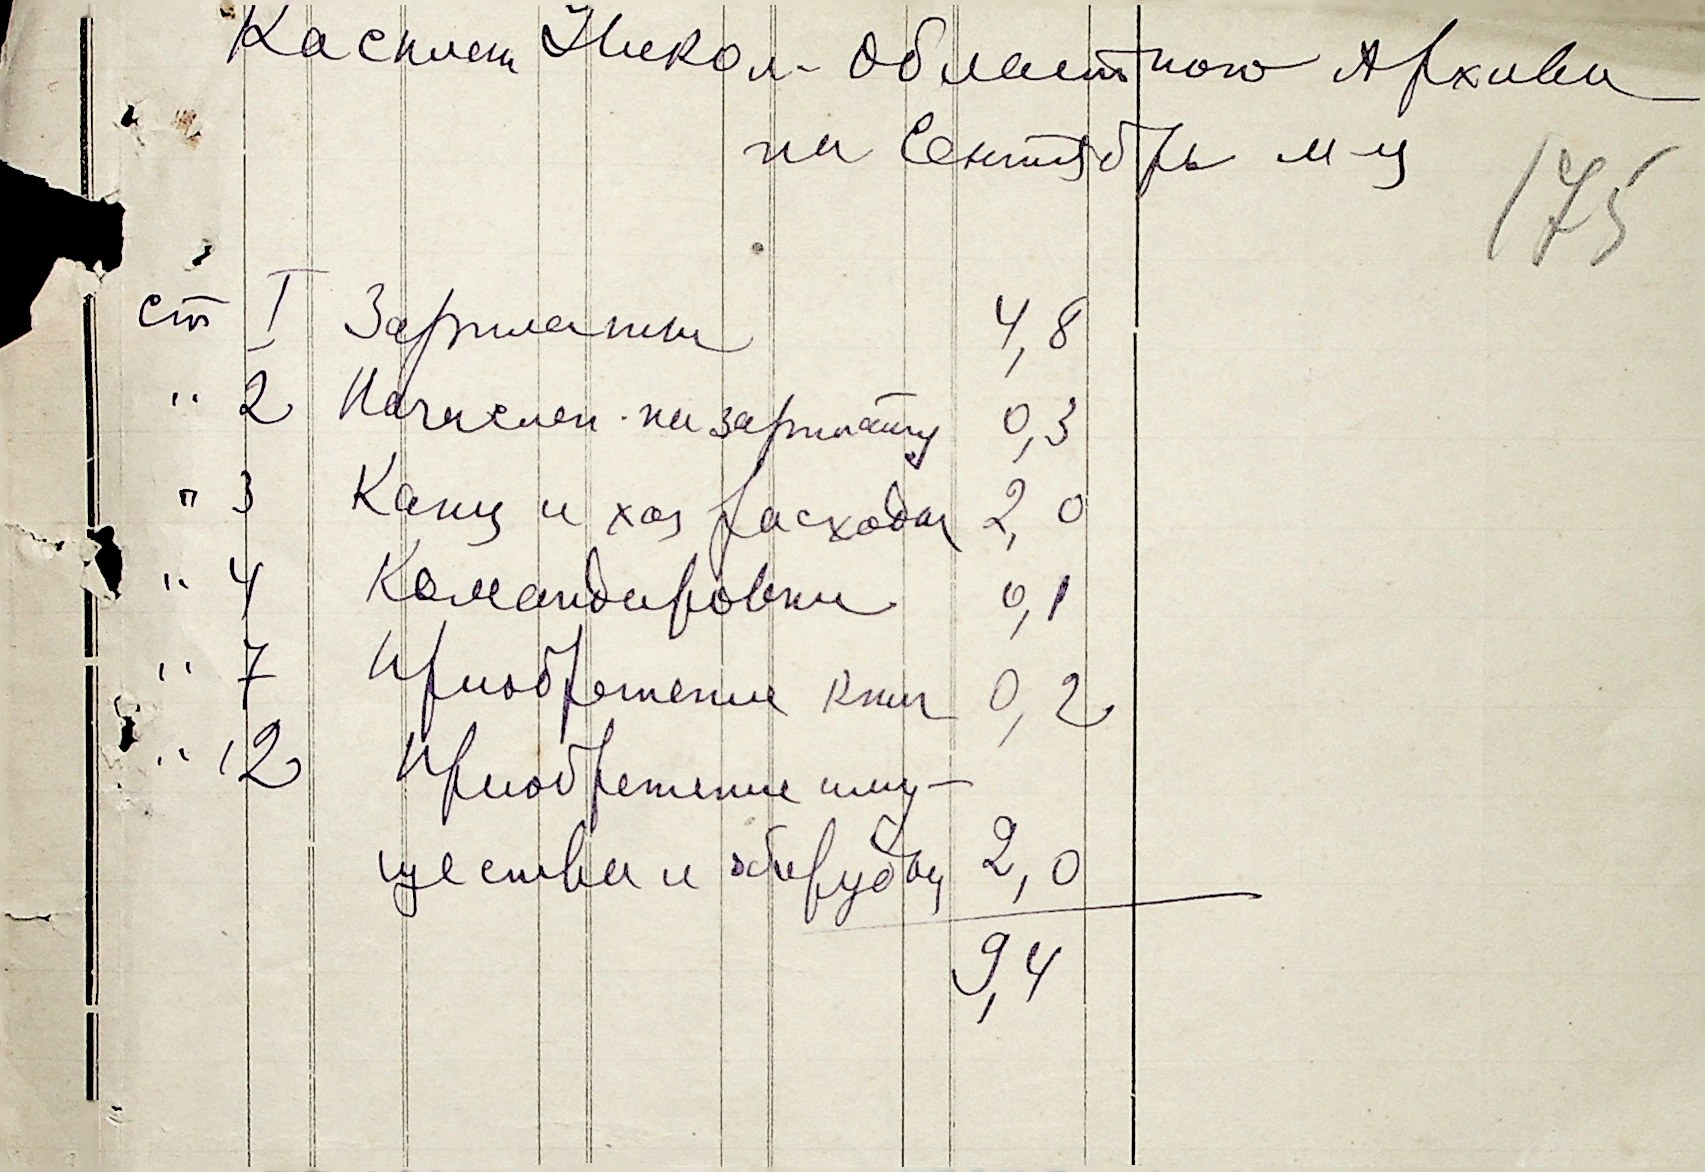 Касплан Никол. Областного Архива
на Сентябрь м-ц
175
ст I Зарплаты 4,8
" 2 Начислен. на зарплату 0,3
" 3 Канц и хоз расходы 2,0
" 4 Командировки 0,1
" 7 Приобретение книг 0,2
" 12 Приобретение иму-
щества и оборудов 2,0
9,4